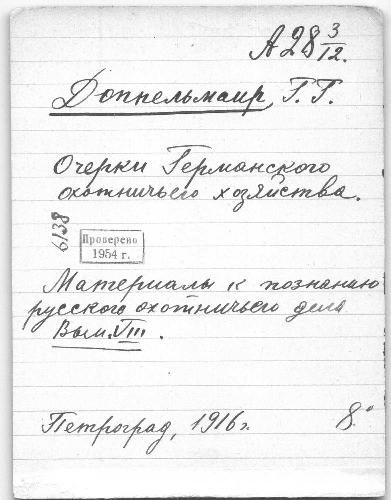 А28 3/12.
Доппельмаир, Г. Г.
Очерки Германского
охотничьего хозяйства.
6138
Проверено
1954 г.
Материалы к познанию
русского охотничьего дела
Вып. VIII.
Петроград, 1916 г. 8°